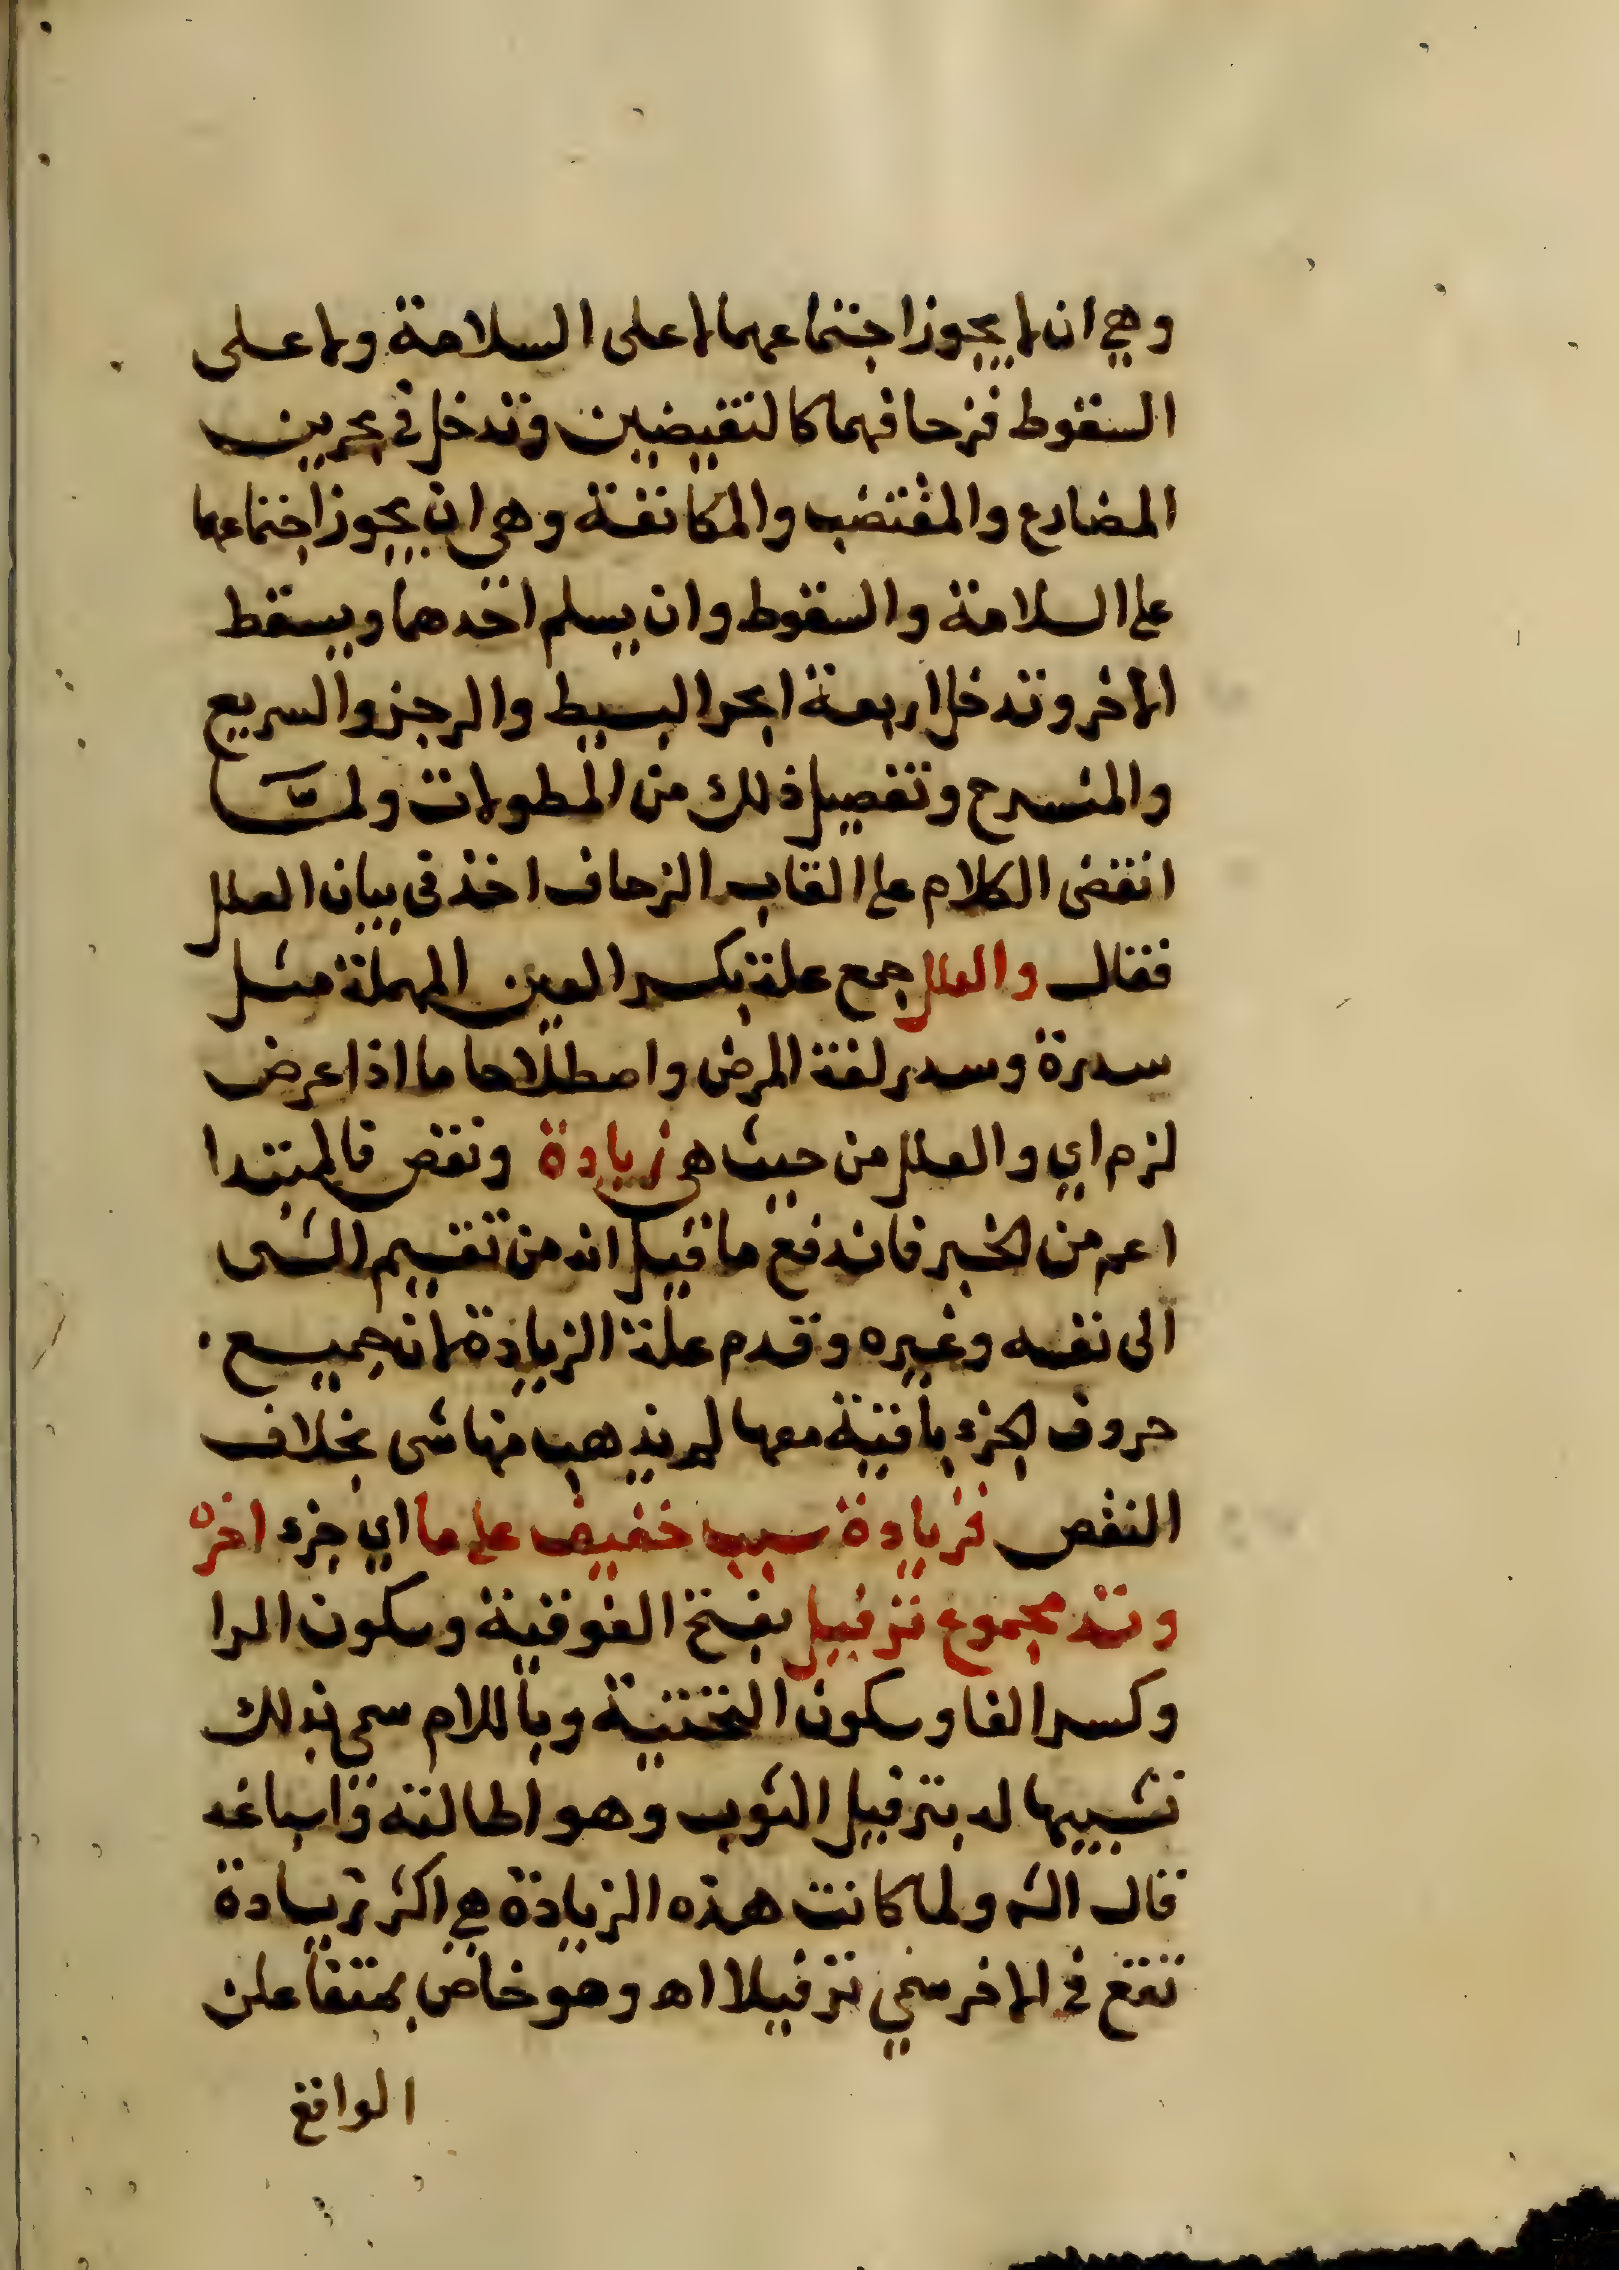 وهي ان لا يجوز اجتماعهما لا على السلامة ولا على
السقوط فزحافهما كالنقيضين وتدخل في بحرين
المضارع والمقتضب والمكانفة وهي ان يجوز اجتماعهما
على السلامة والسقوط وان يسلم احدهما ويسقط
الاخر وتدخل اربعة ابحر البسيط والرجز والسريع
والمنسرح وتفصيل ذلك من المطولات ولما
انقضى الكلام على القاب الزحاف اخذ في بيان العلل
فقال والعلل جمع علة بكسر العين المهملة مثل
سدرة وسدر لغة المرض واصطلاحا ما اذا عرض
لزم اي والعلل من حيث هي زيادة ونقص فالمبتدا
اعم من الخبر فاندفع ما قيل انه من تقسيم الشى
الى نفسه وغيره وقدم علة الزيادة لان جميع
حروف الجزء باقية معها لم يذهب منها شى بخلاف
النقص فزيادة سبب خفيف على ما اي جزء اخره
وتد مجموع ترفيل بفتح الفوقية وسكون الرا
وكسر الفا وسكون التحتية وباللام سمى بذلك
تشبيها له بترفيل الثوب وهو اطالته واسباغه
قال الش ولما كانت هذه الزيادة هي اكثر زيادة
تقع في الاخر سمي ترفيلا اه وهو خاص بمتفاعلن
الواقع